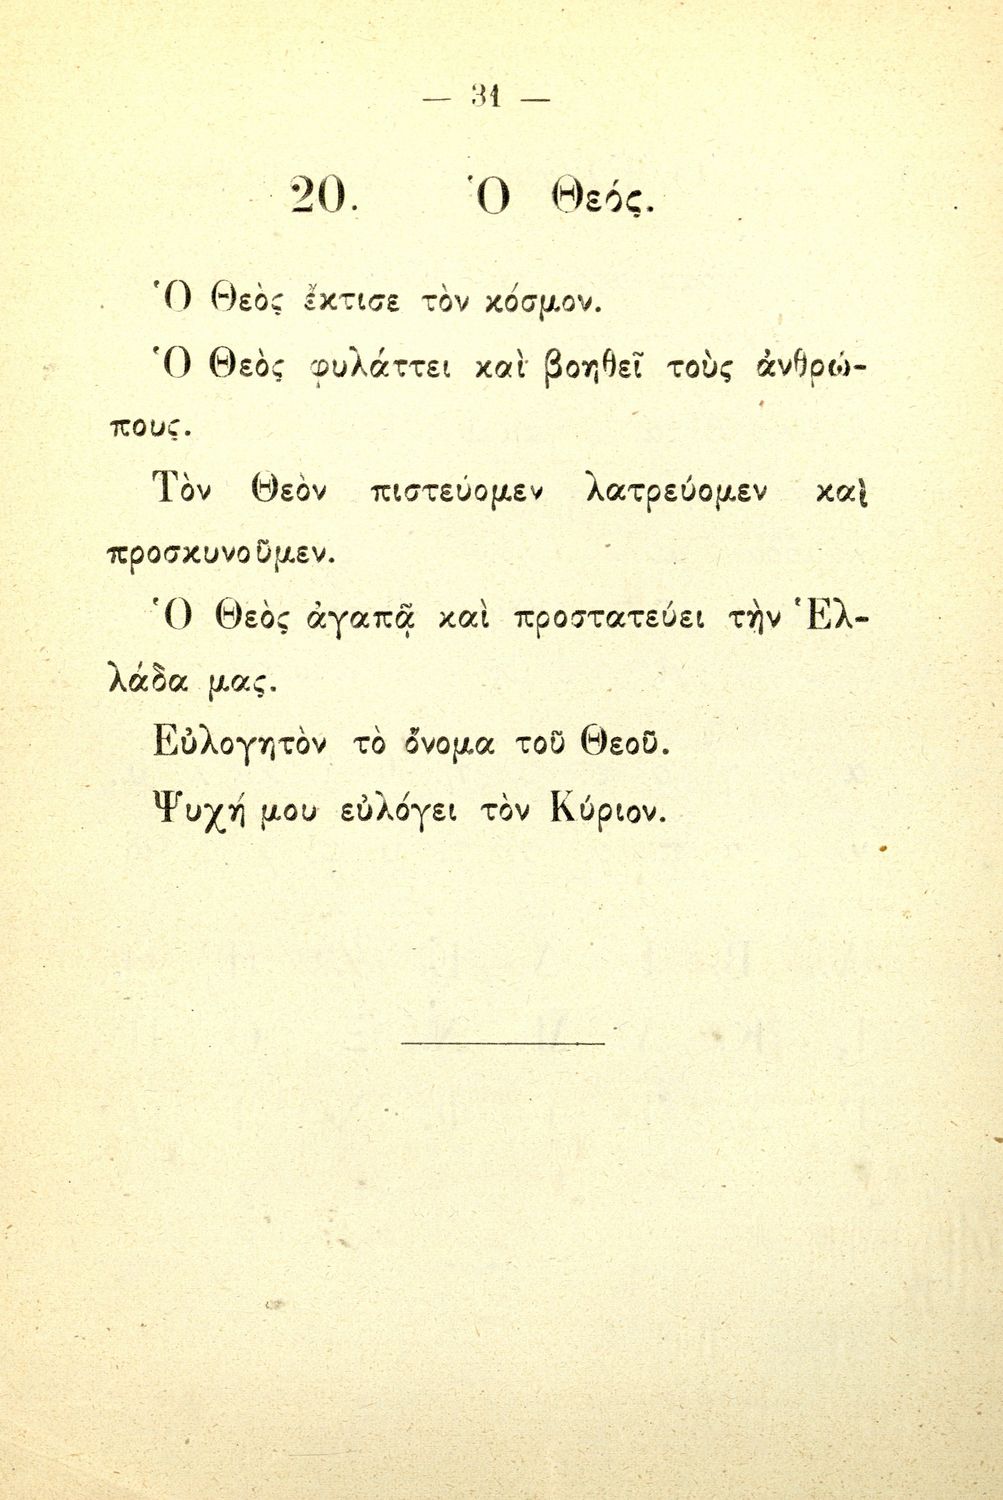 — 31 —
20. Ὁ Θεός.
Ὁ Θεὸς ἔκτισε τὸν κόσμον.
Ὁ Θεὸς φυλάττει καὶ βοηθεῖ τοὺς ἀνθρώ-
πους.
Τὸν Θεὸν πιστεύομεν λατρεύομεν καὶ
προσκυνοῦμεν.
Ὁ Θεὸς ἀγαπᾷ καὶ προστατεύει τὴν Ἑλ-
λάδα μας.
Εὐλογητὸν τὸ ὄνομα τοῦ Θεοῦ.
Ψυχή μου εὐλόγει τὸν Κύριον.